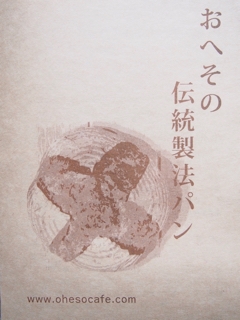 おへその
伝統製法パン
www.ohesocafe.com